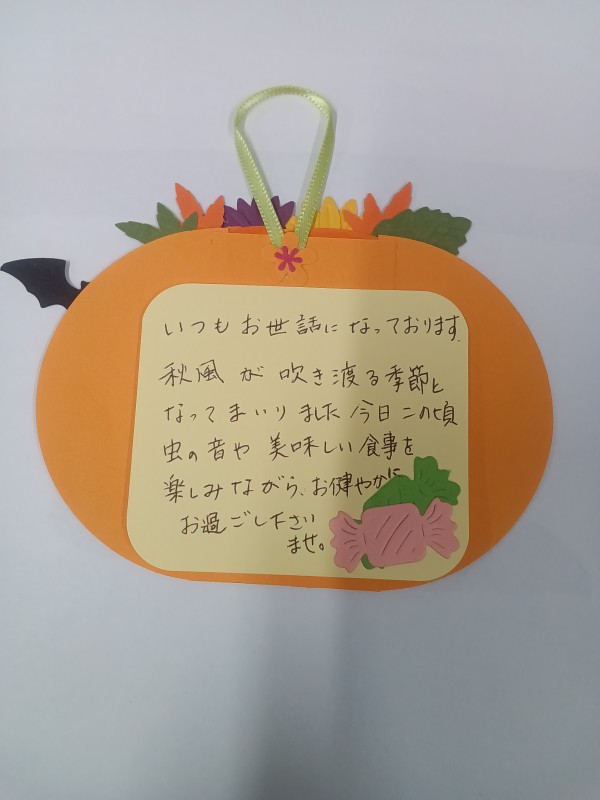 いつもお世話になっております。
秋風が吹き渡る季節と
なってまいりました今日この頃
虫の音や美味しい食事を
楽しみながら、お健やかに
お過ごし下さい
ませ。